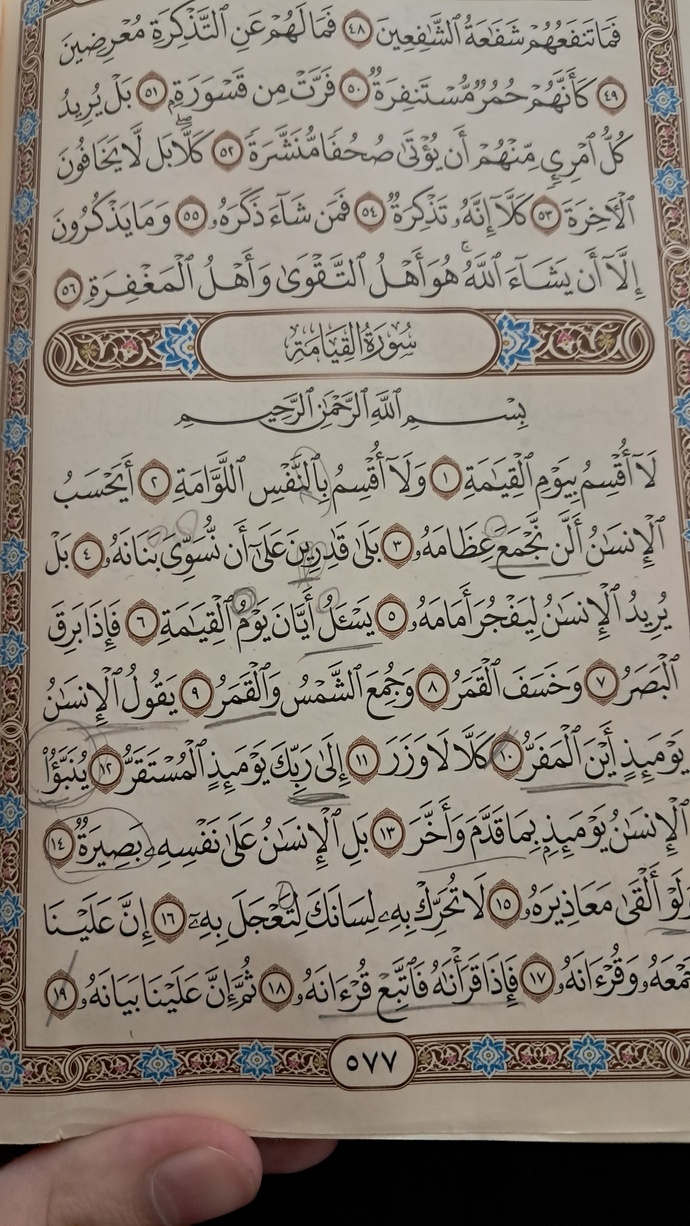 فَمَا تَنفَعُهُمْ شَفَٰعَةُ ٱلشَّٰفِعِينَ ٤٨ فَمَا لَهُمْ عَنِ ٱلتَّذْكِرَةِ مُعْرِضِينَ
٤٩ كَأَنَّهُمْ حُمُرٌ مُّسْتَنفِرَةٌ ٥٠ فَرَّتْ مِن قَسْوَرَةٍۭ ٥١ بَلْ يُرِيدُ
كُلُّ ٱمْرِئٍ مِّنْهُمْ أَن يُؤْتَىٰ صُحُفًا مُّنَشَّرَةً ٥٢ كَلَّاۖ بَل لَّا يَخَافُونَ
ٱلْءَاخِرَةَ ٥٣ كَلَّآ إِنَّهُۥ تَذْكِرَةٌ ٥٤ فَمَن شَآءَ ذَكَرَهُۥ ٥٥ وَمَا يَذْكُرُونَ
إِلَّآ أَن يَشَآءَ ٱللَّهُۚ هُوَ أَهْلُ ٱلتَّقْوَىٰ وَأَهْلُ ٱلْمَغْفِرَةِ ٥٦
سُورَةُ القِيَامَةِ
بِسْمِ ٱللَّهِ ٱلرَّحْمَٰنِ ٱلرَّحِيمِ
لَآ أُقْسِمُ بِيَوْمِ ٱلْقِيَٰمَةِ ١ وَلَآ أُقْسِمُ بِٱلنَّفْسِ ٱللَّوَّامَةِ ٢ أَيَحْسَبُ
ٱلْإِنسَٰنُ أَلَّن نَّجْمَعَ عِظَامَهُۥ ٣ بَلَىٰ قَٰدِرِينَ عَلَىٰٓ أَن نُّسَوِّىَ بَنَانَهُۥ ٤ بَلْ
يُرِيدُ ٱلْإِنسَٰنُ لِيَفْجُرَ أَمَامَهُۥ ٥ يَسْـَٔلُ أَيَّانَ يَوْمُ ٱلْقِيَٰمَةِ ٦ فَإِذَا بَرِقَ
ٱلْبَصَرُ ٧ وَخَسَفَ ٱلْقَمَرُ ٨ وَجُمِعَ ٱلشَّمْسُ وَٱلْقَمَرُ ٩ يَقُولُ ٱلْإِنسَٰنُ
يَوْمَئِذٍ أَيْنَ ٱلْمَفَرُّ ١٠ كَلَّا لَا وَزَرَ ١١ إِلَىٰ رَبِّكَ يَوْمَئِذٍ ٱلْمُسْتَقَرُّ ١٢ يُنَبَّؤُا۟
ٱلْإِنسَٰنُ يَوْمَئِذٍۭ بِمَا قَدَّمَ وَأَخَّرَ ١٣ بَلِ ٱلْإِنسَٰنُ عَلَىٰ نَفْسِهِۦ بَصِيرَةٌ ١٤
وَلَوْ أَلْقَىٰ مَعَاذِيرَهُۥ ١٥ لَا تُحَرِّكْ بِهِۦ لِسَانَكَ لِتَعْجَلَ بِهِۦٓ ١٦ إِنَّ عَلَيْنَا
جَمْعَهُۥ وَقُرْءَانَهُۥ ١٧ فَإِذَا قَرَأْنَٰهُ فَٱتَّبِعْ قُرْءَانَهُۥ ١٨ ثُمَّ إِنَّ عَلَيْنَا بَيَانَهُۥ ١٩
٥٧٧